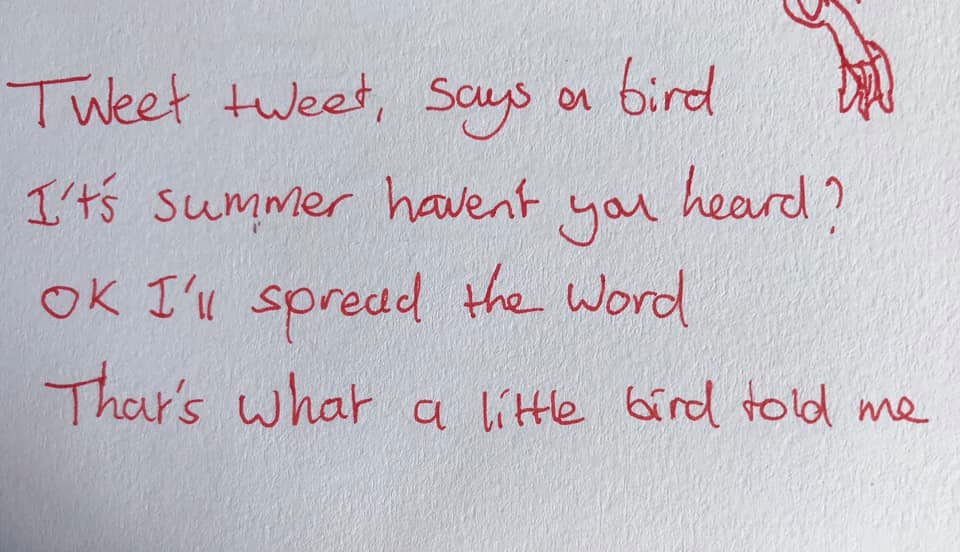 Tweet tweet, says a bird
I't's summer haven't you heard?
OK I'll spread the word
That's what a little bird told me